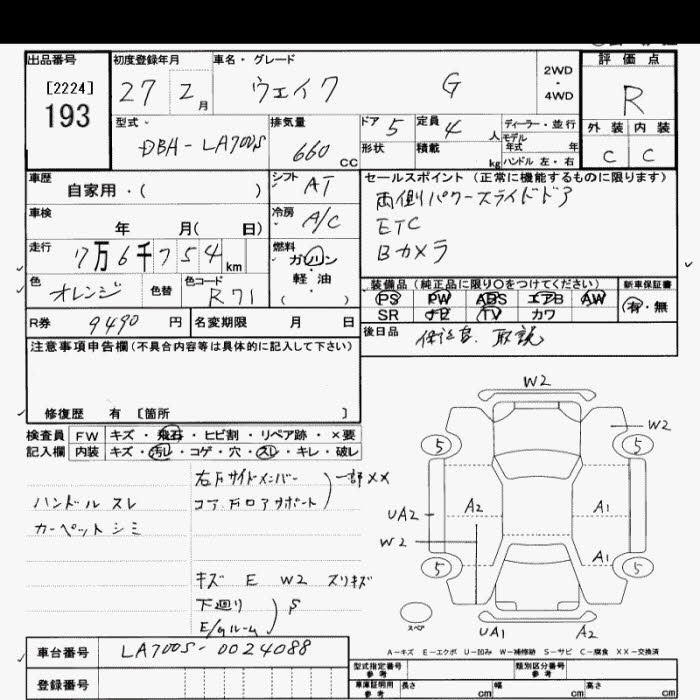 出品番号
[2224]
193
初度登録年月
27 2月
車名・グレード
ウェイク G
2WD
・
4WD
評価点
R
外装 内装
C C
型式
DBA-LA700S
排気量
660 CC
ドア 5
定員 4人
形状
積載 kg
ディーラー・並行
モデル
年式 年
ハンドル 左・右
車歴
自家用・( )
シフト AT
車検
年 月( 日)
冷房 A/C
走行
7万6千754km
燃料
ガソリン
軽油
( ・ )
色
オレンジ
色替
色コード
R71
セールスポイント(正常に機能するものに限ります)
両側パワースライドドア
ETC
Bカメラ
装備品(純正品に限り○をつけてください)
PS PW ABS エアB AW
SR ナビ TV カワ
新車保証書
有・無
R券 9490円
名変期限 月 日
後日品 保証書、取説
注意事項申告欄(不具合内容等は具体的に記入して下さい)
修復歴 有 [箇所 ]
検査員
記入欄
FW キズ・飛石・ヒビ割・リペア跡・×要
内装 キズ・汚レ・コゲ・穴・スレ・キレ・破レ
ハンドル スレ
カーペット シミ
右Fサイドメンバー
コア Fロアサポート
一部XX
キズ E W2 スリキズ
下廻り
E/gルーム
S
W2
W2
5
5
UA2
A2
A1
W2
A1
5
5
スペア
UA1
A2
A-キズ E-エクボ U-凹み W-補修跡 S-サビ C-腐食 XX-交換済
車台番号 LA700S-0024088
登録番号
型式指定番号
参考
類別区分番号
参考
車庫証明用
参考
長さ cm
幅 cm
高さ cm